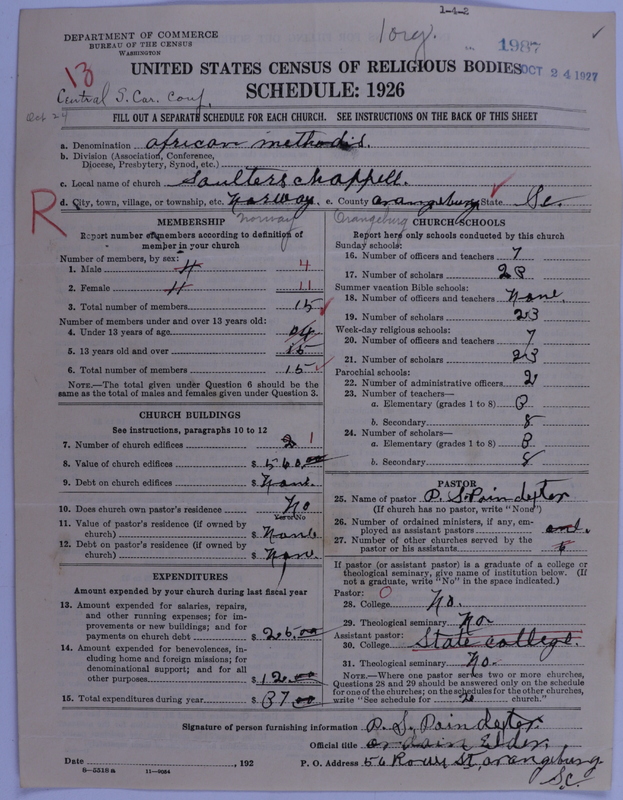 1-4-2
DEPARTMENT OF COMMERCE
BUREAU OF THE CENSUS
WASHINGTON
1 org.
1987
OCT 24 1927
13
UNITED STATES CENSUS OF RELIGIOUS BODIES
Central S. Car. Conf.
SCHEDULE: 1926
Oct 24
FILL OUT A SEPARATE SCHEDULE FOR EACH CHURCH. SEE INSTRUCTIONS ON THE BACK OF THIS SHEET
a. Denomination african methodis.
b. Division (Association, Conference,
Diocese, Presbytery, Synod, etc.)
c. Local name of church Saulters chappell.
R
d. City, town, village, or township, etc. Norway. e. County orangeburg State Sc.
Norway Orangeburg
MEMBERSHIP
Report number of members according to definition of
member in your church
Number of members, by sex:
1. Male 4 4
2. Female 11 11
3. Total number of members 15
Number of members under and over 13 years old:
4. Under 13 years of age
5. 13 years old and over 15
6. Total number of members 15
NOTE.—The total given under Question 6 should be
same as the total of males and females given under Question 3.
CHURCH BUILDINGS
See instructions, paragraphs 10 to 12
7. Number of church edifices 2 1
8. Value of church edifices $ 560.00
9. Debt on church edifices $ None.
10. Does church own pastor's residence No
Yes or No
11. Value of pastor's residence (if owned by
church) $ None
12. Debt on pastor's residence (if owned by
church) $ None.
EXPENDITURES
Amount expended by your church during last fiscal year
13. Amount expended for salaries, repairs,
and other running expenses; for im-
provements or new buildings; and for
payments on church debt $ 25.00
14. Amount expended for benevolences, in-
cluding home and foreign missions; for
denominational support; and for all
other purposes $ 12.00
15. Total expenditures during year $ 37.00
CHURCH SCHOOLS
Report here only schools conducted by this church
Sunday schools:
16. Number of officers and teachers 7
17. Number of scholars 23
Summer vacation Bible schools:
18. Number of officers and teachers None.
19. Number of scholars 23
Week-day religious schools:
20. Number of officers and teachers 7
21. Number of scholars 23
Parochial schools:
22. Number of administrative officers 2
23. Number of teachers—
a. Elementary (grades 1 to 8)
b. Secondary 8
24. Number of scholars—
a. Elementary (grades 1 to 8)
b. Secondary 8
PASTOR
25. Name of pastor P. S. Poindexter
(If church has no pastor, write "None")
26. Number of ordained ministers, if any, em-
ployed as assistant pastors one.
27. Number of other churches served by the
pastor or his assistants
If pastor (or assistant pastor) is a graduate of a college or
theological seminary, give name of institution below. (If
not a graduate, write "No" in the space indicated.)
Pastor: 0
28. College No.
29. Theological seminary No.
Assistant pastor:
30. College State college.
31. Theological seminary No.
NOTE.—Where one pastor serves two or more churches,
Questions 28 and 29 should be answered only on the schedule
for one of the churches; on the schedules for the other churches,
write "See schedule for 20 church."
Signature of person furnishing information P. S. Poindexter.
Official title ordain Elder.
Date , 192 P. O. Address 56 Rouse St, orangeburg.
S.C.
8—5518 a 11—9084